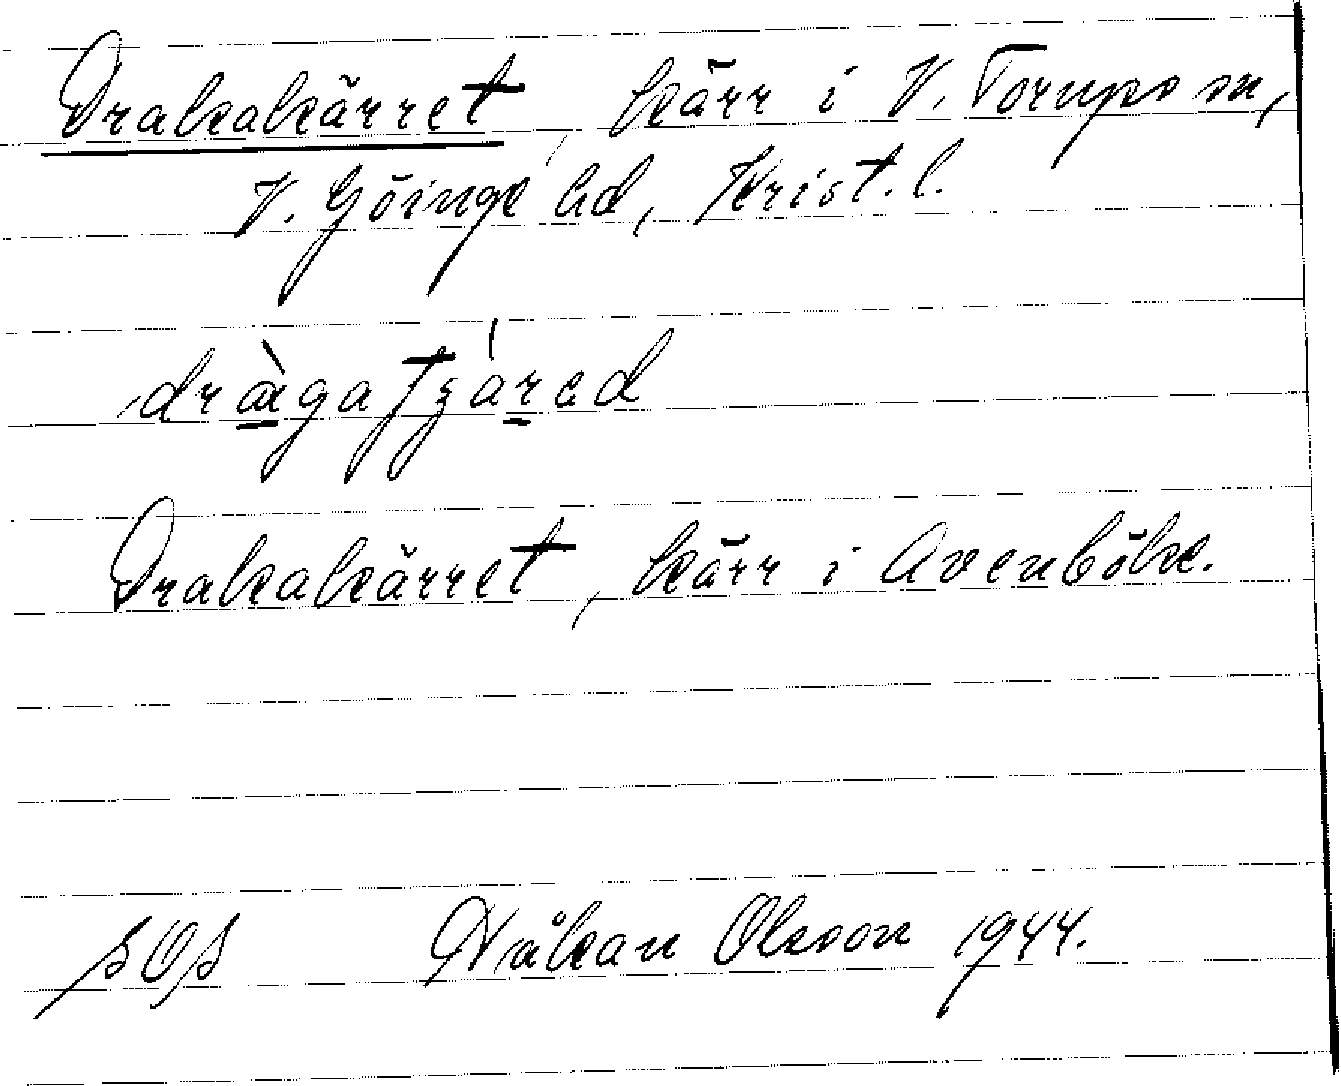 Drakakärret, kärr i V. Torups sn,
V. Göinge hd, Krist. l.
Drakakärret, kärr i Avenböke.
SOS Håkan Olsson 1944.